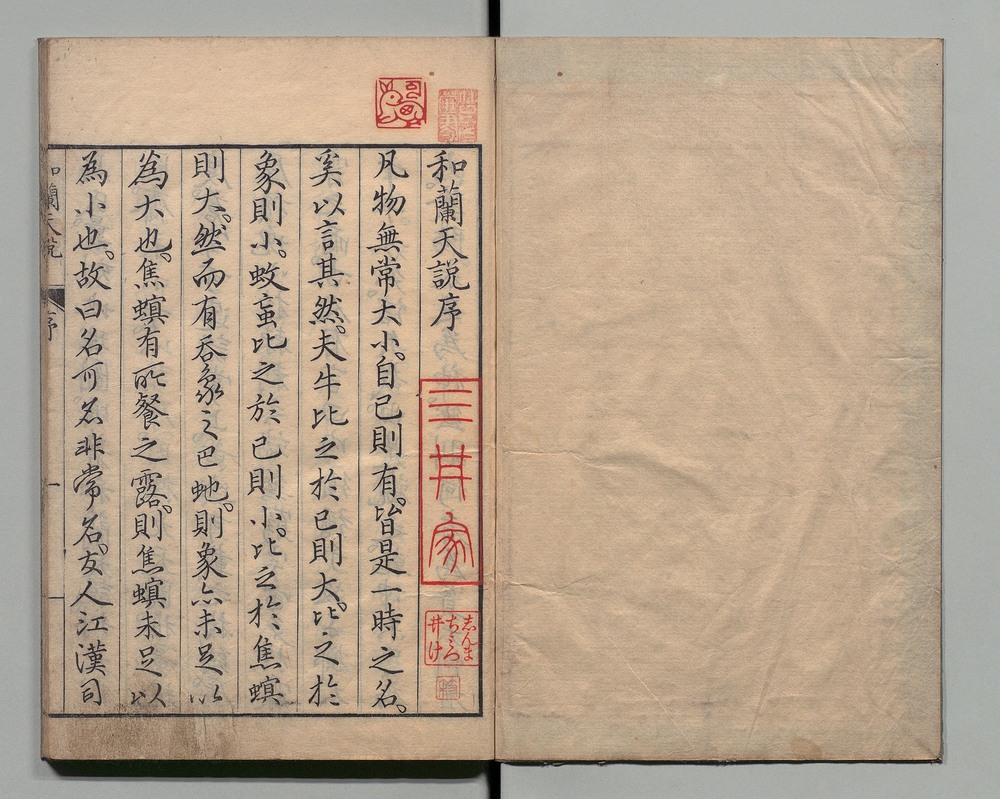 和蘭天説序
凡物無常大小。自己則有。皆是一時之名。
奚以言其然。夫牛比之於己則大。比之於
象則小。蚊䖟比之於己則小。比之於焦螟
則大。然而有呑象之巴虵。則象亦未足以
為大也。焦螟有所餐之露。則焦螟未足以
為小也。故曰名可名非常名。友人江漢司
和蘭天説
序
一
三井家
志んま
ち三つ
井け